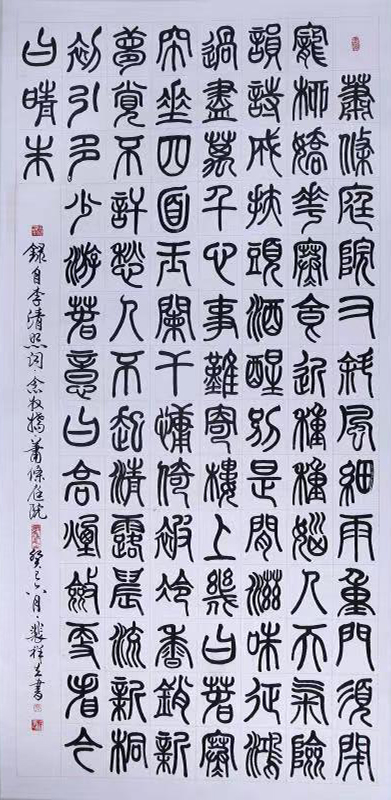 蕭條庭院又斜風細雨重門須閉
寵柳嬌花寒食近種種惱人天氣險
韻詩成扶頭酒醒別是閒滋味征鴻
過盡萬千心事難寄樓上幾日春寒
帘垂四面玉闌干慵倚被冷香銷新
夢覺不許愁人不起清露晨流新桐
初引多少游春意日高煙斂更看今
日晴未
錄自李清照词念奴嬌·蕭條庭院 癸巳八月 祥書